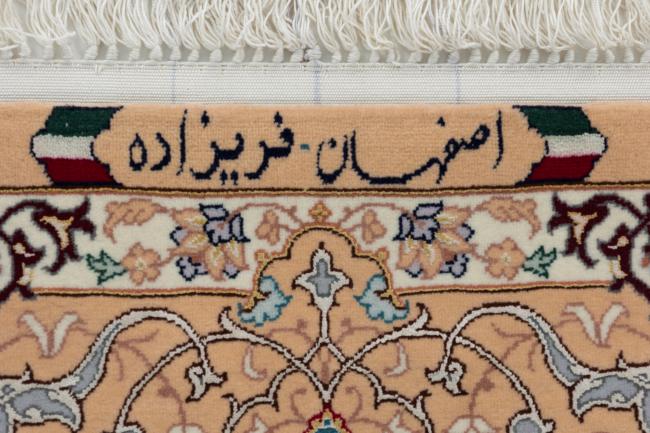 اصفهان - فریززاده